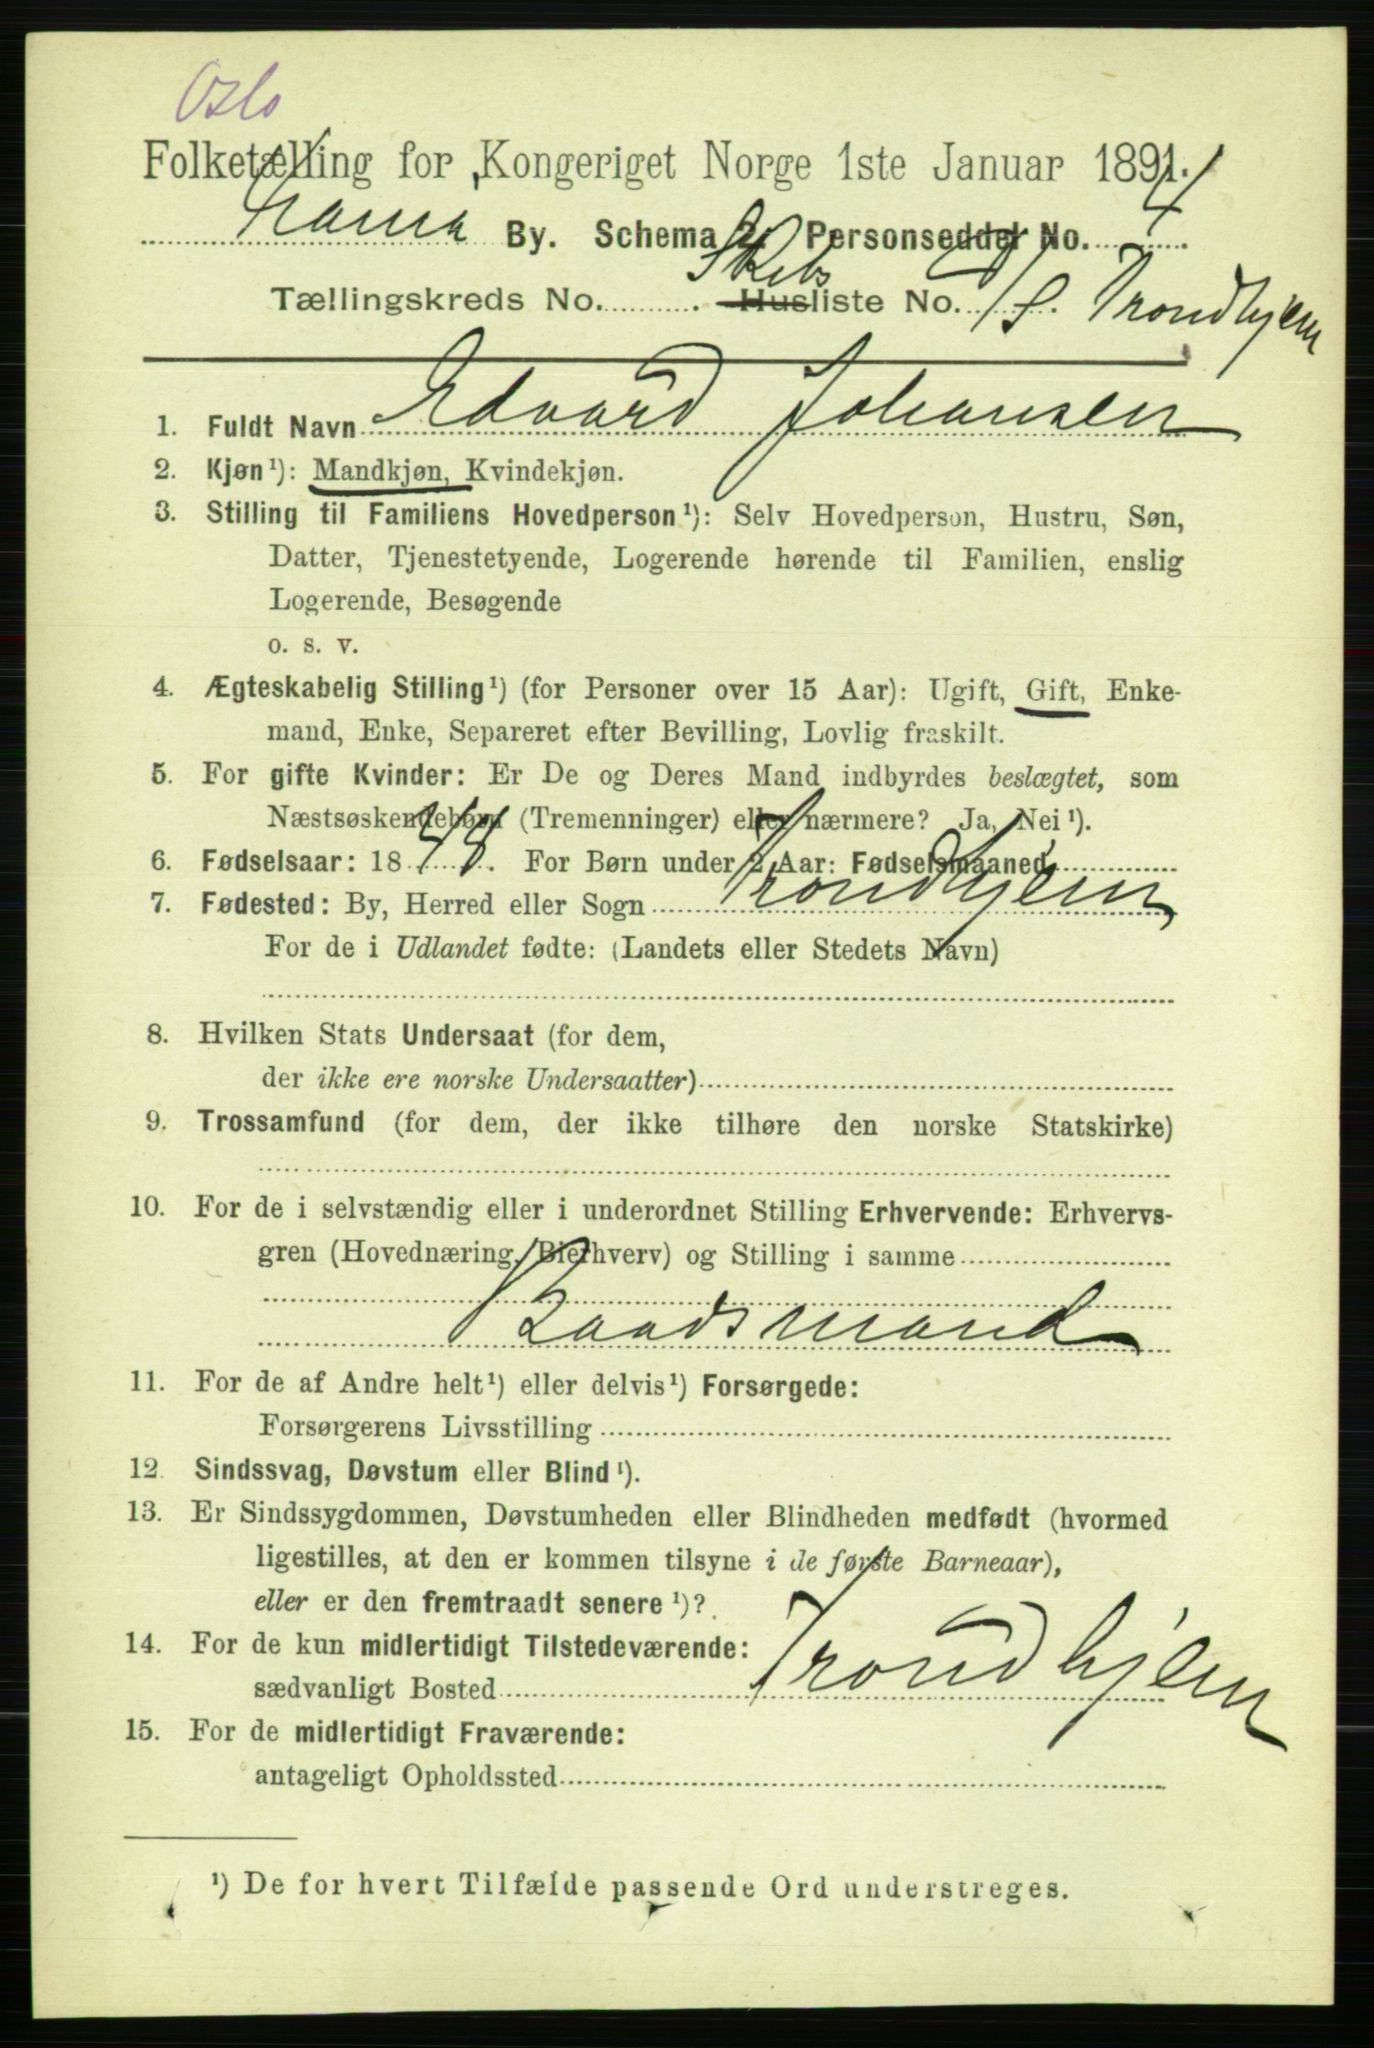 Oslo
Folketælling for Kongeriget Norge 1ste Januar 1891.
By. Schema 2. Personseddel No. 4.
Tællingskreds No. ......... Skibs Husliste No. S. Trondhjem
1. Fuldt Navn Edvard Johansen
2. Kjøn¹): Mandkjøn, Kvindekjøn.
3. Stilling til Familiens Hovedperson¹): Selv Hovedperson, Hustru, Søn,
Datter, Tjenestetyende, Logerende hørende til Familien, enslig
Logerende, Besøgende
o. s. v.
4. Ægteskabelig Stilling¹) (for Personer over 15 Aar): Ugift, Gift, Enke-
mand, Enke, Separeret efter Bevilling, Lovlig fraskilt.
5. For gifte Kvinder: Er De og Deres Mand indbyrdes beslægtet, som
Næstsøskendebørn (Tremenninger) eller nærmere? Ja, Nei¹).
6. Fødselsaar: 1844. For Børn under 2 Aar: Fødselsmaaned
7. Fødested: By, Herred eller Sogn Trondhjem
For de i Udlandet fødte: (Landets eller Stedets Navn)
8. Hvilken Stats Undersaat (for dem,
der ikke ere norske Undersaatter)
9. Trossamfund (for dem, der ikke tilhøre den norske Statskirke)
10. For de i selvstændig eller i underordnet Stilling Erhvervende: Erhvervs-
gren (Hovednæring, Bierhverv) og Stilling i samme
Baadsmand
11. For de af Andre helt¹) eller delvis¹) Forsørgede:
Forsørgerens Livsstilling
12. Sindssvag, Døvstum eller Blind¹).
13. Er Sindssygdommen, Døvstumheden eller Blindheden medfødt (hvormed
ligestilles, at den er kommen tilsyne i de første Barneaar),
eller er den fremtraadt senere¹)?
14. For de kun midlertidigt Tilstedeværende:
sædvanligt Bosted Trondhjem
15. For de midlertidigt Fraværende:
antageligt Opholdssted
¹) De for hvert Tilfælde passende Ord understreges.